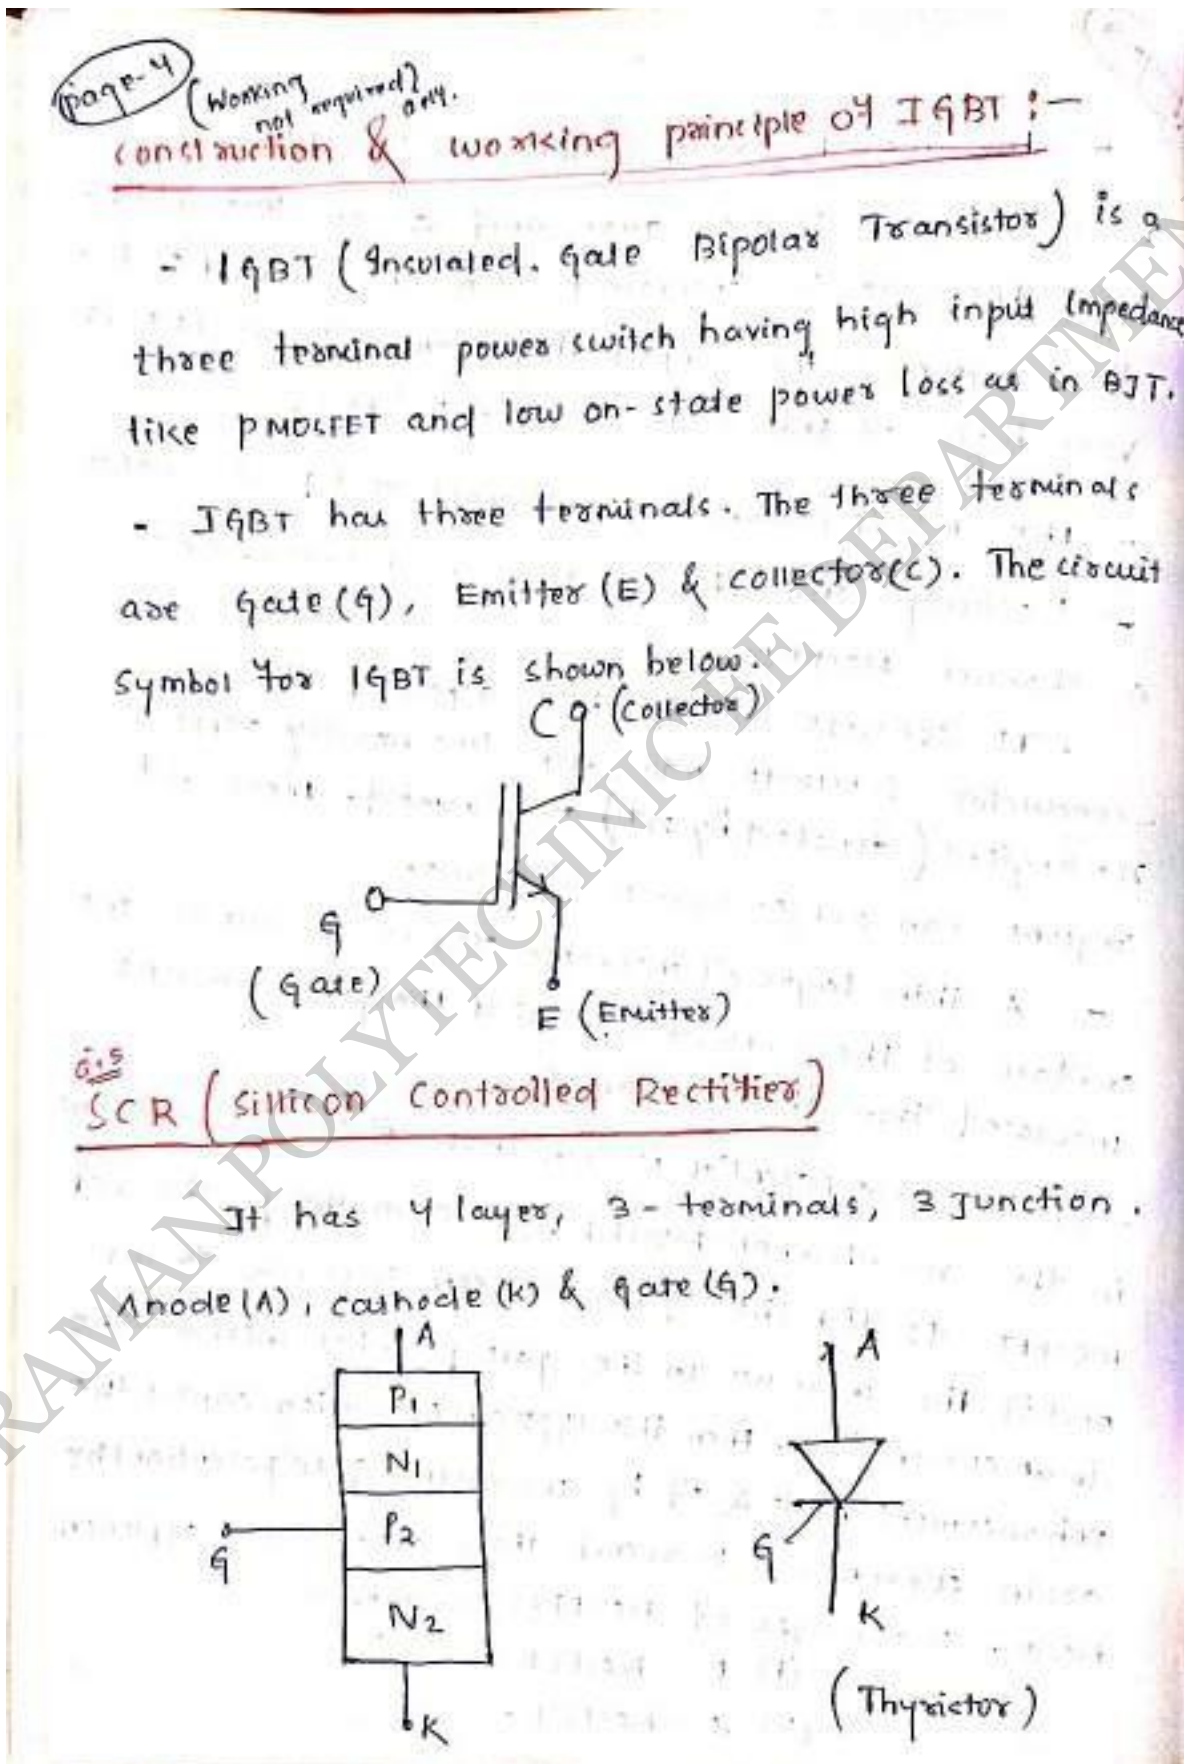 page-4
(Working
not required)
only.
construction & working principle of IGBT :-
- IGBT (Insulated. Gate Bipolar Transistor) is a
three terminal power switch having high input impedance
like PMOSFET and low on-state power loss as in BJT.
- IGBT has three terminals. The three terminals
are Gate(G), Emitter (E) & collector(C). The circuit
symbol for IGBT is shown below.
C (Collector)
G
(Gate)
E (Emitter)
SCR (Sillicon Controlled Rectifier)
It has 4 layer, 3-terminals, 3 Junction.
Anode(A), cathode(K) & gate(G).
A
P1
N1
P2
N2
G
K
A
G
K
(Thyrictor)
RAMAN POLYTECHNIC EE DEPARTMEN